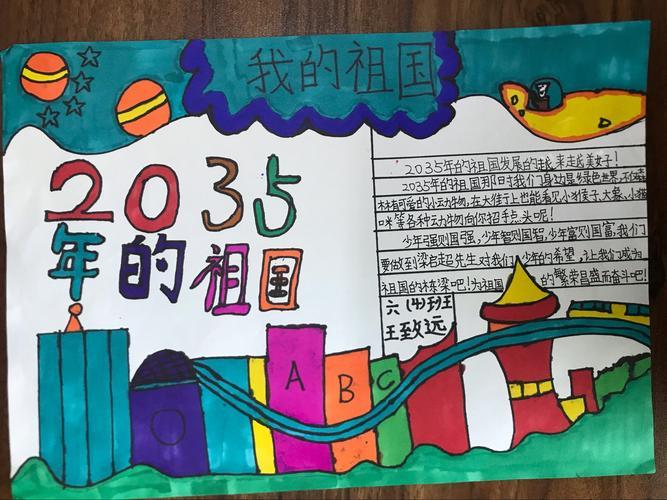 我的祖国
2035
年的祖国
2035年的祖国发展的越来越美好!
2035年的祖国那时我们身边是绿色世界,不仅
有可爱的小动物,在大街上也能看见小猴子、大象、小猫
咪等各种动物向你招手点头呢!
少年强则国强,少年智则国智,少年富则国富,我们
要做到梁启超先生对我们少年的希望,让我们成为
祖国的栋梁吧!为祖国的繁荣昌盛而奋斗吧!
六(4)班
王致远
A
B
C